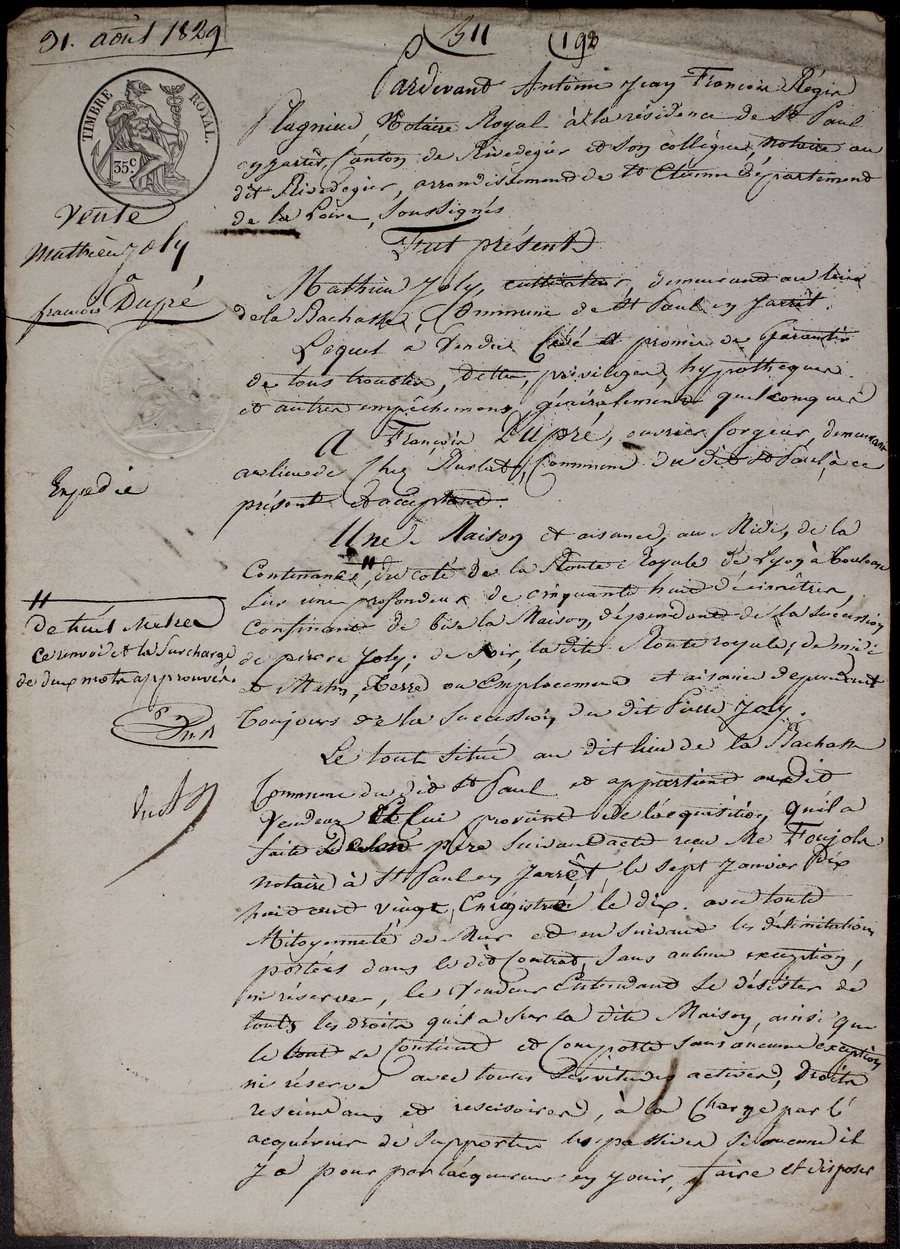 31. août 1829
311
198
TIMBRE ROYAL
35c.
Vente
Mathieu Joly
a
françois Dupré
Expédié
Pardevant Antoine Jean François Régis
Plagnieu, Notaire Royal à la résidence de St Paul
en Jarrêt, Canton de Rivedegier et son collègue, notaire au
dit Rivedegier, arrondissement de St Etienne département
de la Loire, Soussignés
Fut présent
Mathieu Joly, cultivateur, demeurant au lieu
de la Bachasse, Commune de St Paul en Jarrêt.
Lequel a Vendu Cédé et promis de Garantir
de tous troubles, dettes, privilèges, hypothèques
et autres empêchemens généralement quelconques
A François Dupré, ouvrier forgeur, demeurant
au lieu de Chez Commune du dit St Paul, à ce
présent et acceptant.
Une Maison et aisance, au Midi, de la
Contenance " du coté de la Route Royale de Lyon à Toulouse
Sur une profondeur de cinquante huit décimètres,
Confinant de bise la Maison, dépendant de la succession
de pierre Joly; de soir, la dite Route royale; de midi
et Matin, Terre ou Emplacement et aisance dependant
Toujours de la Succession du dit Pierre Joly.
" de huit Metres
Ce renvoi et la Surcharge
de deux mots approuvés
Le tout Situé au dit lieu de la Bachasse
Commune du dit St Paul et appartient au Dit
Vendeur et lui provient de l'acquisition qu'il a
faite de son père Suivant acte reçu Me Foujols
notaire à St Paul en Jarrêt le sept Janvier Dix
huit cent vingt, Enrégistré le dix. avec toute
Mitoyenneté de Mur et en suivant les délimitations
portées dans le dit Contrat, Sans autre exception,
ni réserve, le Vendeur Entendant Se désister de
touts les droits qu'il a Sur la dite Maison, ainsi que
le tout se Contient et Comporte sans aucune exception
ni réserve avec toutes Servitudes actives, droits
rescindans et rescisoires, à la Charge par l'
acquéreur de Supporter les passives Si aucune il
y a pour par l'acquereur en jouir, faire et disposer